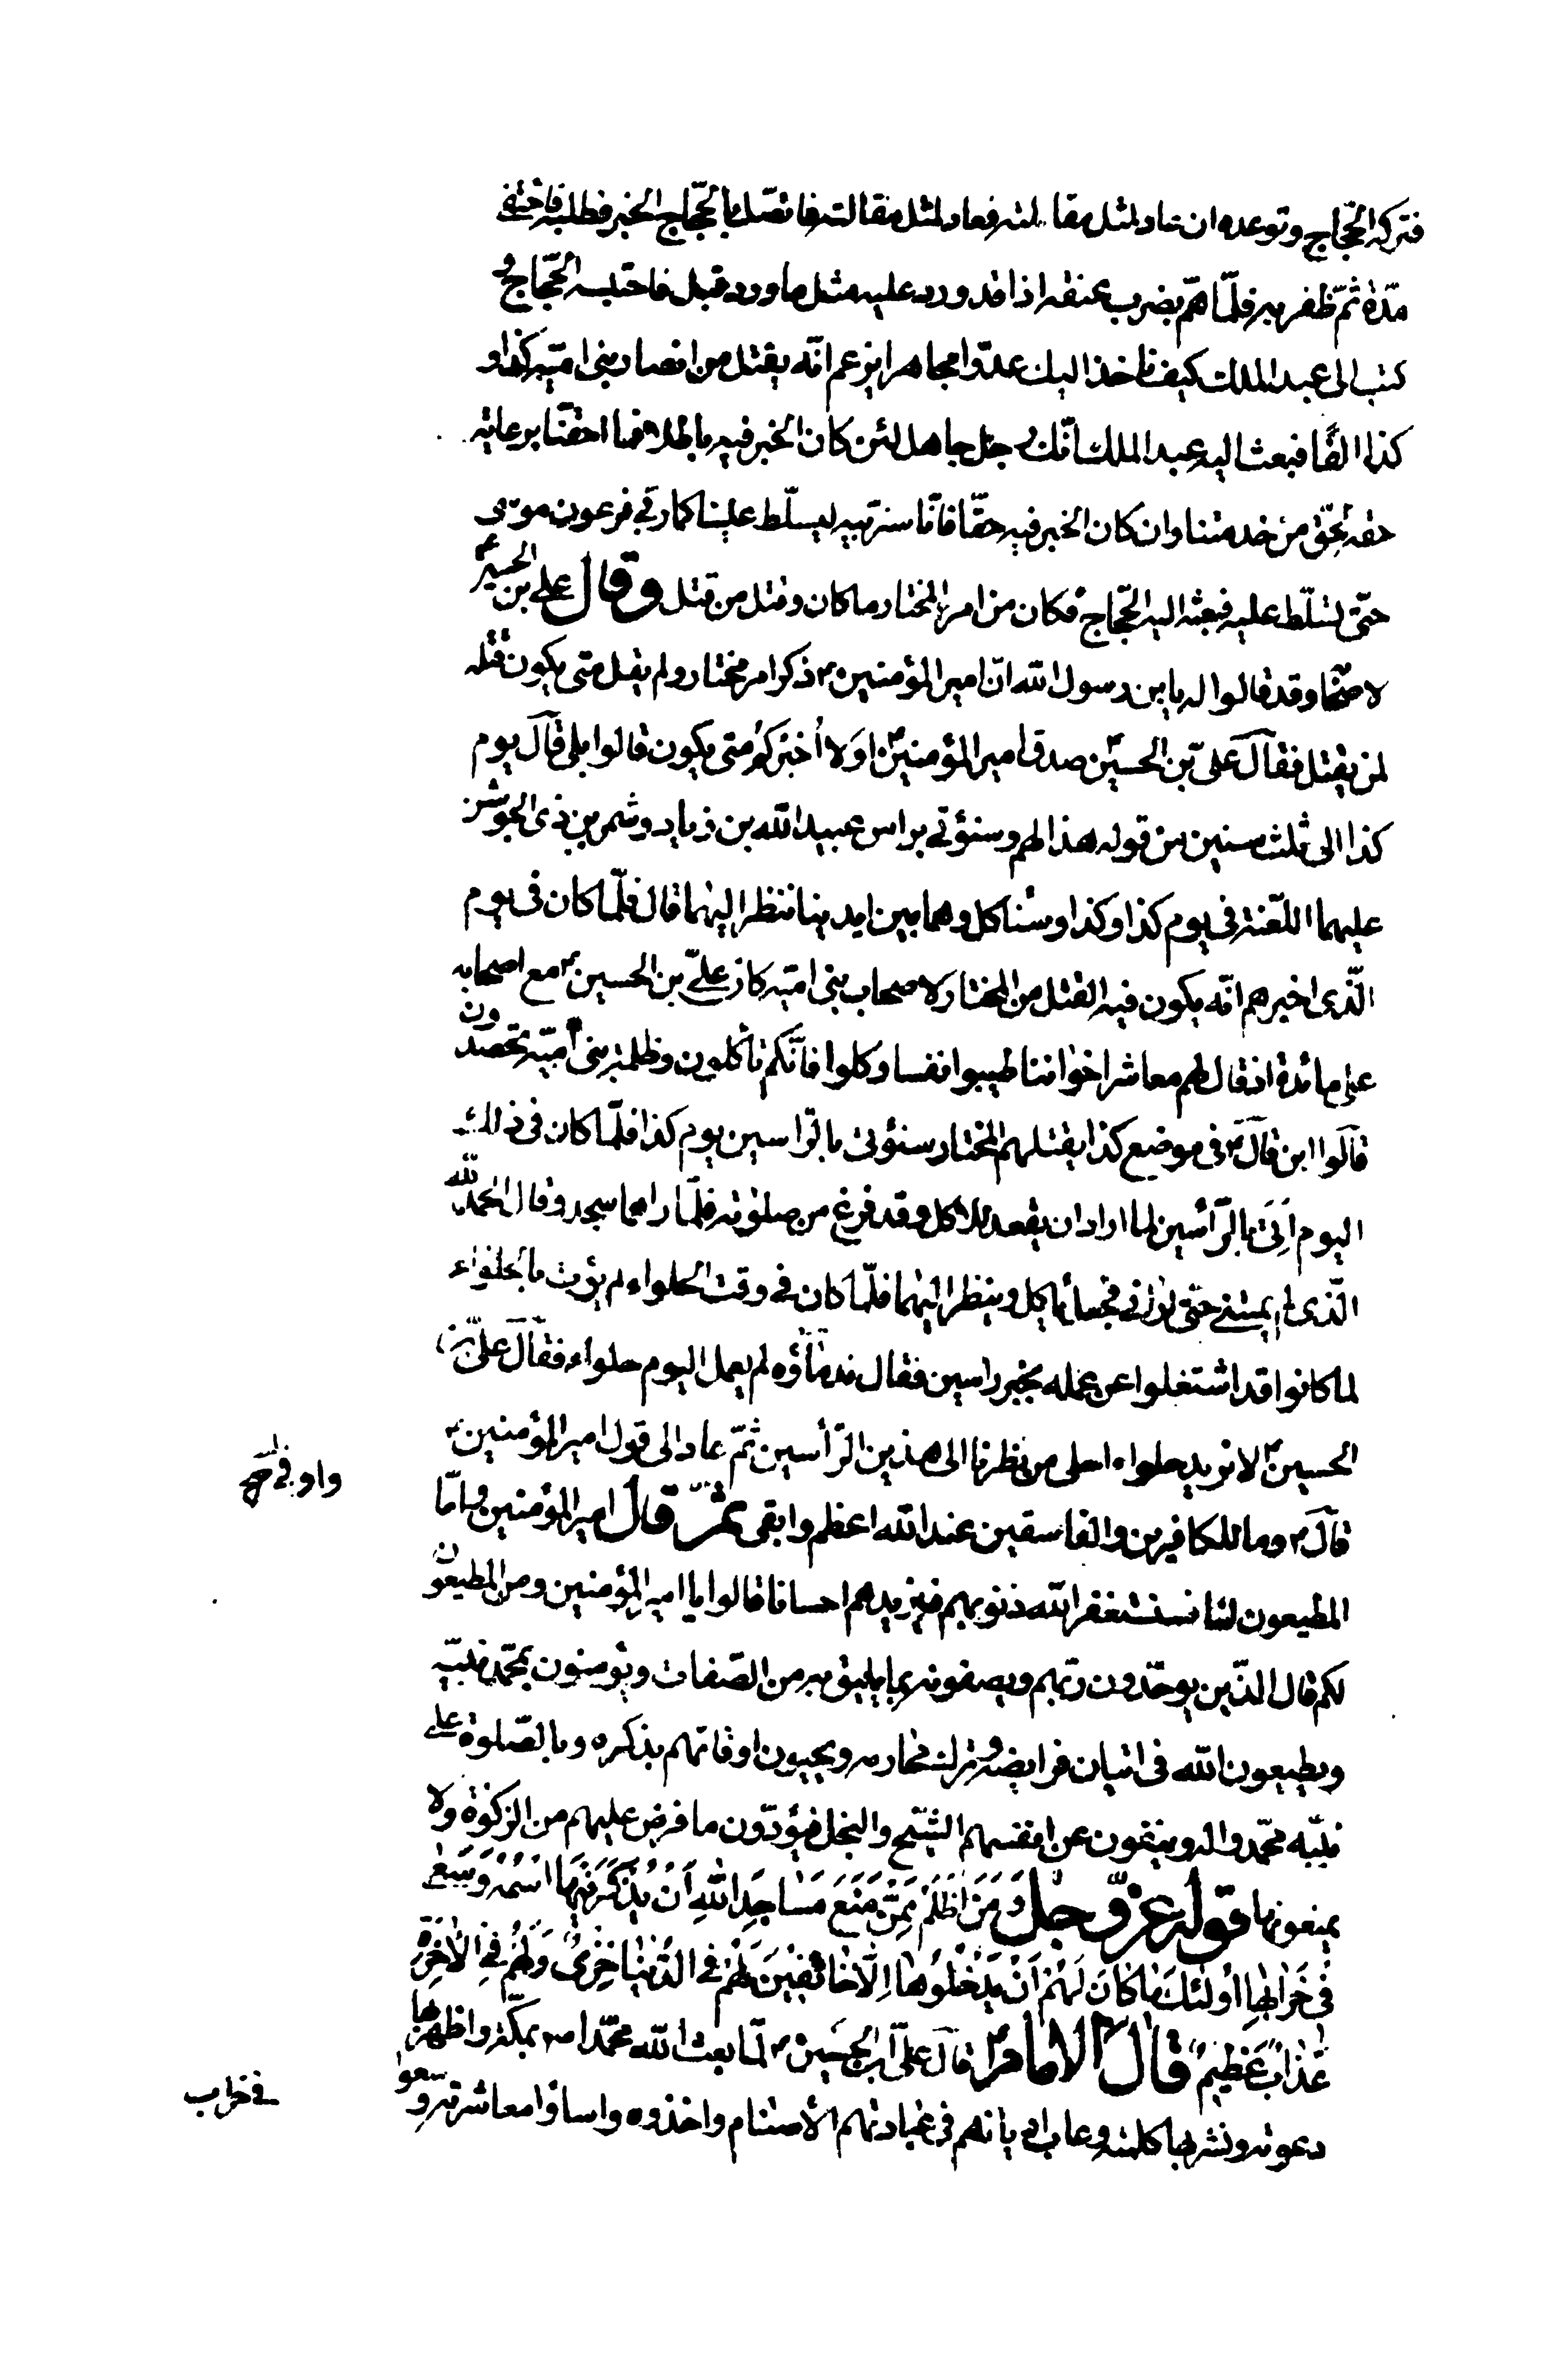 فتركه الحجّاج وتوعده ان عاد لمثل مقالته فعاد لمثل مقالته فاتصّل بالحجّاج الخبر فطلبه فاختفى
مدّة ثمّ ظفر به فلمّا همّ بضرب عنقه اذا قد ورد عليه مثل ما ورد قبل فاحتبسه الحجّاج و
كتب الى عبد الملك كيف تاخذ اليك عدوّا مجاهرا يزعم انّه يقتل من انصار بنى اميّه كذا و
كذا الفًا فبعث اليه عبد الملك انّك رجل جاهل لئن كان الخبر فيه باطلا فما احقنا برعاية
حقه لحقّ من خدمتنا وان كان الخبر فيه حقّا فانّا سنربيه ليسلّط علينا كما ربى فرعون موسى
حتّى تسلّط عليه فبعثه اليه الحجّاج فكان من امر المختار ما كان وقتل من قتل وقال على بن الحسين ع
لاصحابه وقد قالوا له يابن رسول الله انّ امير المؤمنين ع ذكر امر مختار ولم يقل متى يكون قتله
لمن يقتل فقال علىّ بن الحسين ع صدق امير المؤمنين ع اولا أخبركم متى يكون قالوا بلى قال يوم
كذا الى ثلث سنين من قوله هذا لهم وسنؤتى براس عبيد الله بن زياد وشمر بن ذى الجوشن
عليهما اللّعنة فى يوم كذا وكذا وسناكل وهما بين ايدينا ننظر اليهما قال فلمّا كان فى يوم
الّذى اخبرهم انّه يكون فيه القتل من المختار لاصحاب بنى اميّه كان علىّ بن الحسين ع مع اصحابه
على مائدة اذ قال لهم معاشر اخواننا طيبوا نفسا وكلوا فانّكم تأكلون وظلمة بنى اميّه تحصدون
قالوا اين قال ع فى موضع كذا يقتلهم المختار سنؤتى بالرّاسين يوم كذا فلمّا كان فى ذلك
اليوم اَتى بالرّأسين لما اراد ان يقعد للاكل وقد فرغ من صلوته فلمّا راهما سجد وقال الحمد لله
الّذى لم يمتنى حتّى ارانى فجعل ياكل وينظر اليهما فلمّا كان فى وقت الحلواء لم يؤت بالحلواء
لما كانوا قد اشتغلوا عن عمله بخبر راسين فقال ندماؤه لم يعمل اليوم حلواء فقال علىّ بن
الحسين ع لا نريد حلواء احلى من نظرنا الى هذين الرّأسين ثمّ عاد الى قول امير المؤمنين ع
قال ع وما للكافرين والفاسقين عند الله اعظم وابقى ثمّ قال امير المؤمنين ع وامّا
واو فى
المطيعون لنا فسنستغفر الله ذنوبهم فنزيدهم احسانا قالوا يا امير المؤمنين ومن المطيعون
لكم قال الّذين يوحّدون ربّهم ويصفونه بما يليق به من الصّفات ويؤمنون بمحمّد نبيّه
ويطيعون الله فى اتيان فرايضه وترك محارمه ويحيون اوقاتهم بذكره وبالصّلوة على
نبيّه محمّد وآله وينفون عن انفسهم الشّح والبخل فيؤدّون ما فرض عليهم من الزكوة ولا
يمنعونها قوله عزّ وجل وَمَنْ اَظْلَمُ مِمَّنْ مَنَعَ مَسَاجِدَ اللهِ اَنْ يُذْكَرَ فِيهَا اسْمُهُ وَسَعٰى
فِى خَرَابِهَا اُولٰئِكَ مَا كَانَ لَهُمْ اَنْ يَدْخُلُوهَا اِلَّا خَائِفِينَ لَهُمْ فِى الدُّنْيَا خِزْىٌ وَلَهُمْ فِى الْاٰخِرَةِ
عَذَابٌ عَظِيمٌ قال الامام ع قال علىّ بن الحسين ع لمّا بعث الله محمّدا ص بمكّة واظهر بها
دعوته ونشر بها كلمته وعاب اديانهم فى عبادتهم الأصنام واخذوه واساؤا معاشرته وسعوا
فى خراب